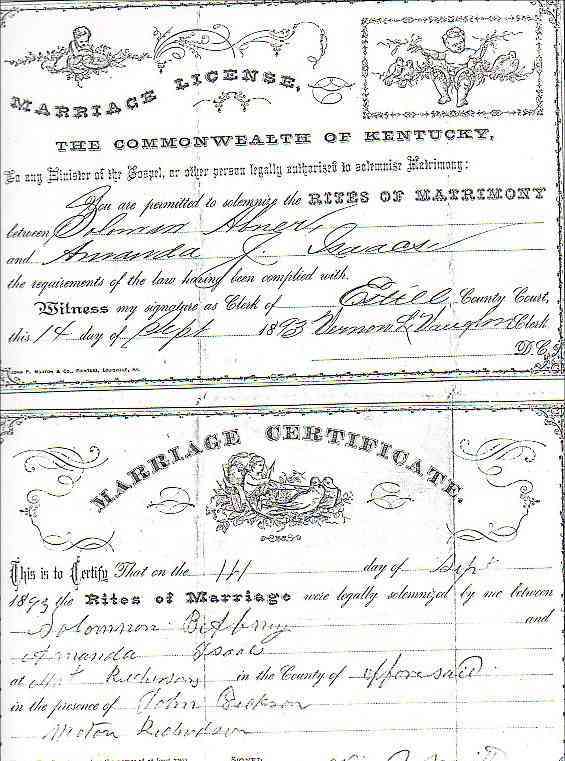 MARRIAGE LICENSE,
THE COMMONWEALTH OF KENTUCKY,
To any Minister of the Gospel, or other person legally authorized to solemnize Matrimony:
You are permitted to solemnize the RITES OF MATRIMONY
between Solomon Abner
and Amanda J Isaacs
the requirements of the law having been complied with.
Witness my signature as Clerk of Estill County Court,
this 14 day of Sept 1893 Vernon L Vaughn Clerk
D.C.
JOHN P. MORTON & CO., PRINTERS, LOUISVILLE, KY.
MARRIAGE CERTIFICATE.
This is to Certify That on the 14 day of Sept
1893 the Rites of Marriage were legally solemnized by me between
Solommon and
Amanda Isaacs
at Richersons in the County of afforesaid
in the presence of John
Moton Richerdson
SIGNED